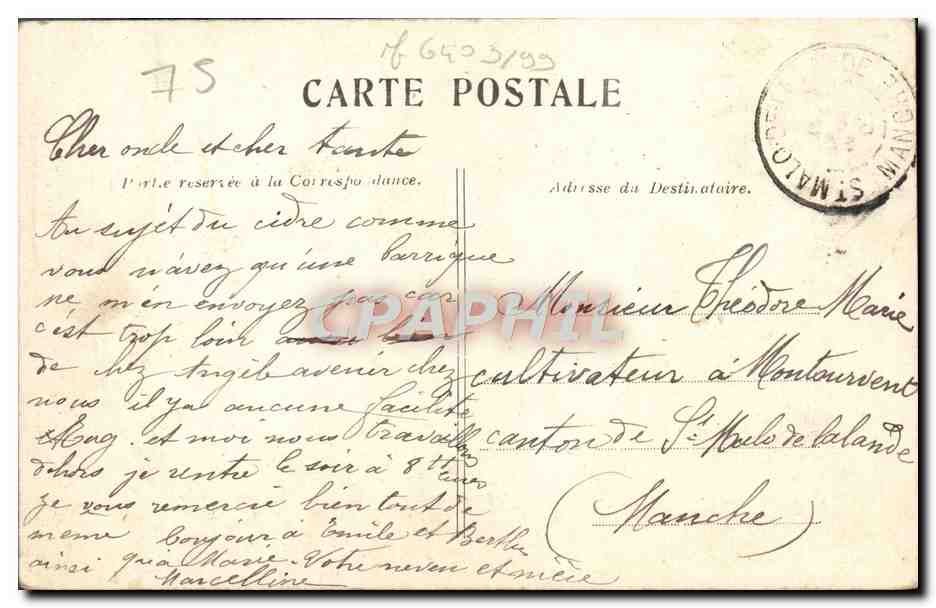 75
CARTE POSTALE
Cher oncle et cher tante
Partie reservée à la Correspondance.
Au sujet du cidre comme
vous n'avez qu'une barrique
ne m'en envoyez pas car
c'est trop loin
de chez avenir chez
nous il ya aucune facilite
et moi nous travaillons
dehors je rentre le soir à 8 heures
je vous remercie bien tout de
même bonjour à Emile et Berthe
ainsi qu'à Marie. Votre neveu et nièce
Marcelline
Adresse du Destinataire.
Monsieur Théodore Marie
cultivateur à Montsurvent
canton de St Malo de lalande
(Manche)
ST MALO-DE-LA-LANDE
MANCHE
CPAPHIL